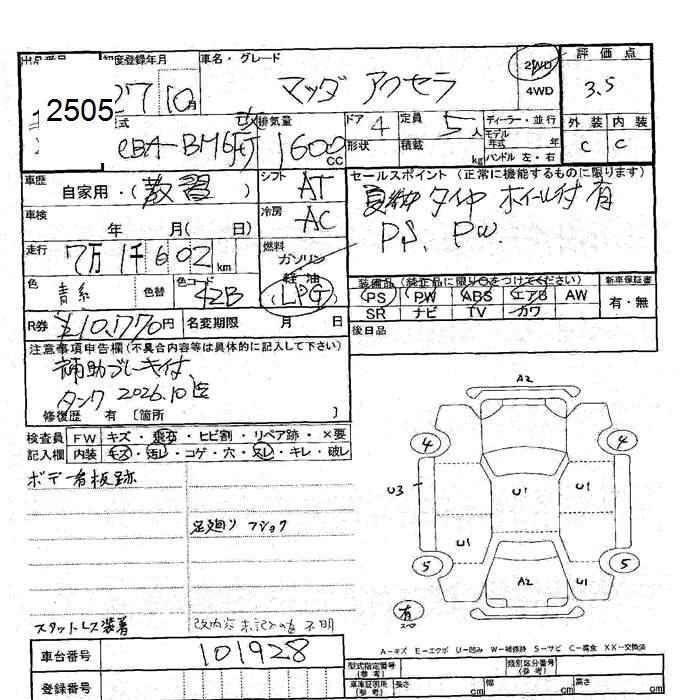 初度登録年月
車名・グレード
評価点
2505
27
10月
マツダ アクセラ
2WD
4WD
3.5
型式
改
排気量
ドア
4
定員
5人
ディーラー・並行
外装
内装
1600
CC
形状
積載
kg
モデル
年式
年
ハンドル 左・右
C
C
車歴
自家用・(教習)
シフト
AT
セールスポイント(正常に機能するものに限ります)
タイヤ ホイール付 有
PS. PW.
車検
年 月( 日)
冷房
AC
走行
7万1千602
km
燃料
ガソリン
軽油
(LPG)
色
青系
色替
色コード
42B
装備品(純正品に限り○をつけてください)
新車保証書
PS
PW
ABS
エアB
AW
SR
ナビ
TV
カワ
有・無
R券
¥10,770円
名変期限
月 日
後日品
注意事項申告欄(不具合内容等は具体的に記入して下さい)
補助ブレーキ付
タンク 2026.10迄
修復歴 有 [箇所 ]
検査員
FW
キズ・飛石・ヒビ割・リペア跡・×要
記入欄
内装
キズ・汚レ・コゲ・穴・スレ・キレ・破レ
ボデー看板跡
足廻り フショク
スタットレス装着
改内容 未記入の為 不明
A2
4
4
U3
U1
U1
U1
U1
5
5
A2
有
スペア
A-キズ E-エクボ U-凹み W-補修跡 S-サビ C-腐食 XX-交換済
車台番号
101928
型式指定番号
(参考)
類別区分番号
(参考)
登録番号
車庫証明用
(参考)
長さ
cm
幅
cm
高さ
cm